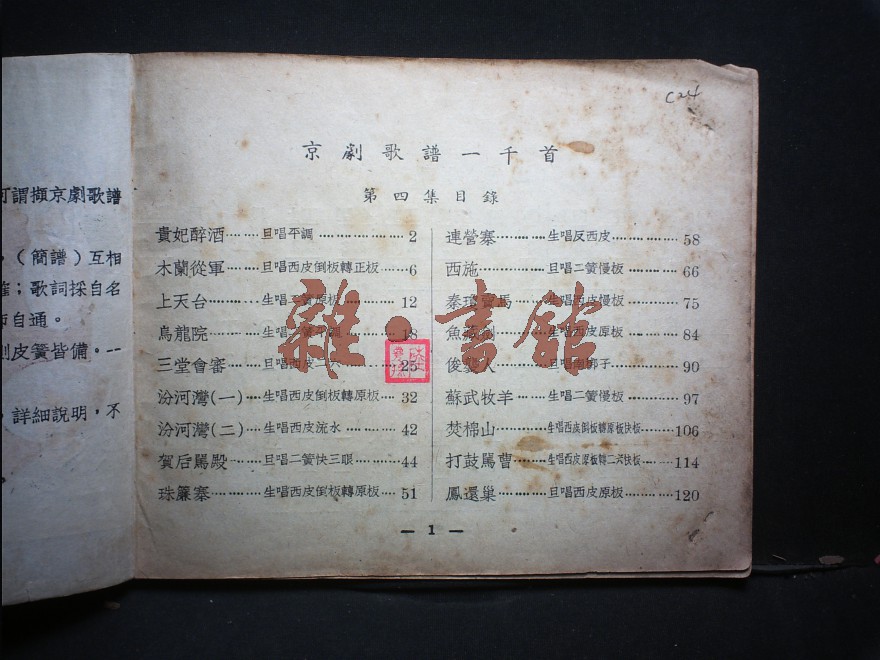 C24
可謂擷京劇歌譜
，（簡譜）互相
；歌詞採自名
自通。
皮簧皆備。
，詳細說明，不
京劇歌譜一千首
第四集目錄
貴妃醉酒……旦唱平調………………2
木蘭從軍……旦唱西皮倒板轉正板……6
上天台………生唱二簧原板………12
烏龍院………生唱………18
三堂會審……旦唱西皮………25
汾河灣(一)…生唱西皮倒板轉原板……32
汾河灣(二)…生唱西皮流水………42
賀后罵殿……旦唱二簧快三眼………44
珠簾寨………生唱西皮倒板轉原板……51
連營寨………生唱反西皮………58
西施…………旦唱二簧慢板………66
秦瓊賣馬……生唱西皮慢板………75
魚藏劍………生唱西皮原板………84
俊襲人………旦唱南梆子………90
蘇武牧羊……生唱二簧慢板………97
焚棉山………生唱西皮倒板轉原板快板……106
打鼓罵曹……生唱西皮原板轉二六快板……114
鳳還巢………旦唱西皮原板………120
— 1 —
雜·書館